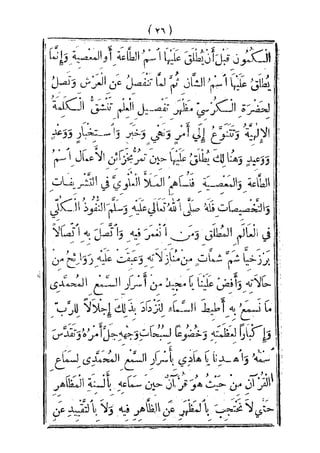 (٢٦)
السكون قبل أن يطلق عليها اسم الطاعة أو المعصية وإنما
يطلق عليها اسم الشان ثم لما تنفصل عن العرش وتصل
لحضرة الكرسي مظهر تفصيل العلم تنشق الكلمة
الإلهية وتتنوع إلى أمر ونهي وخبر واستخبار ووعد
ووعيد وهنالك يطلق عليها حين تمر بخزائن الأعمال اسم
الطاعة والمعصية فتساهم الملأ العلوي في التشريفات
والتخصيصات فله صلى الله تعالى عليه وسلم النفوذ الكلي
في العالم المطلق ومن انغمر فيه واتصل به اتصالا
برزخيا شم شمات من منازلاته وعبقت عليه روائح من
حالاته وأفض علينا يا مجيد من أسرار السمع المحمدي
ما نسمع به أطيط السماء لنزداد بذلك إجلالا للرب
وإكبارا لعظمته وخضوعا لسبحات وجهه جل أمره وتقدس
سمعه واهدنا يا هادي بأسرار السمع المحمدي لسماع
القرآن من حيث هو قرآن حين سماعه بألسنة المظاهر
حتى لا نحتجب بالمظهر عن الظاهر فيه ولا بالتقييد عن